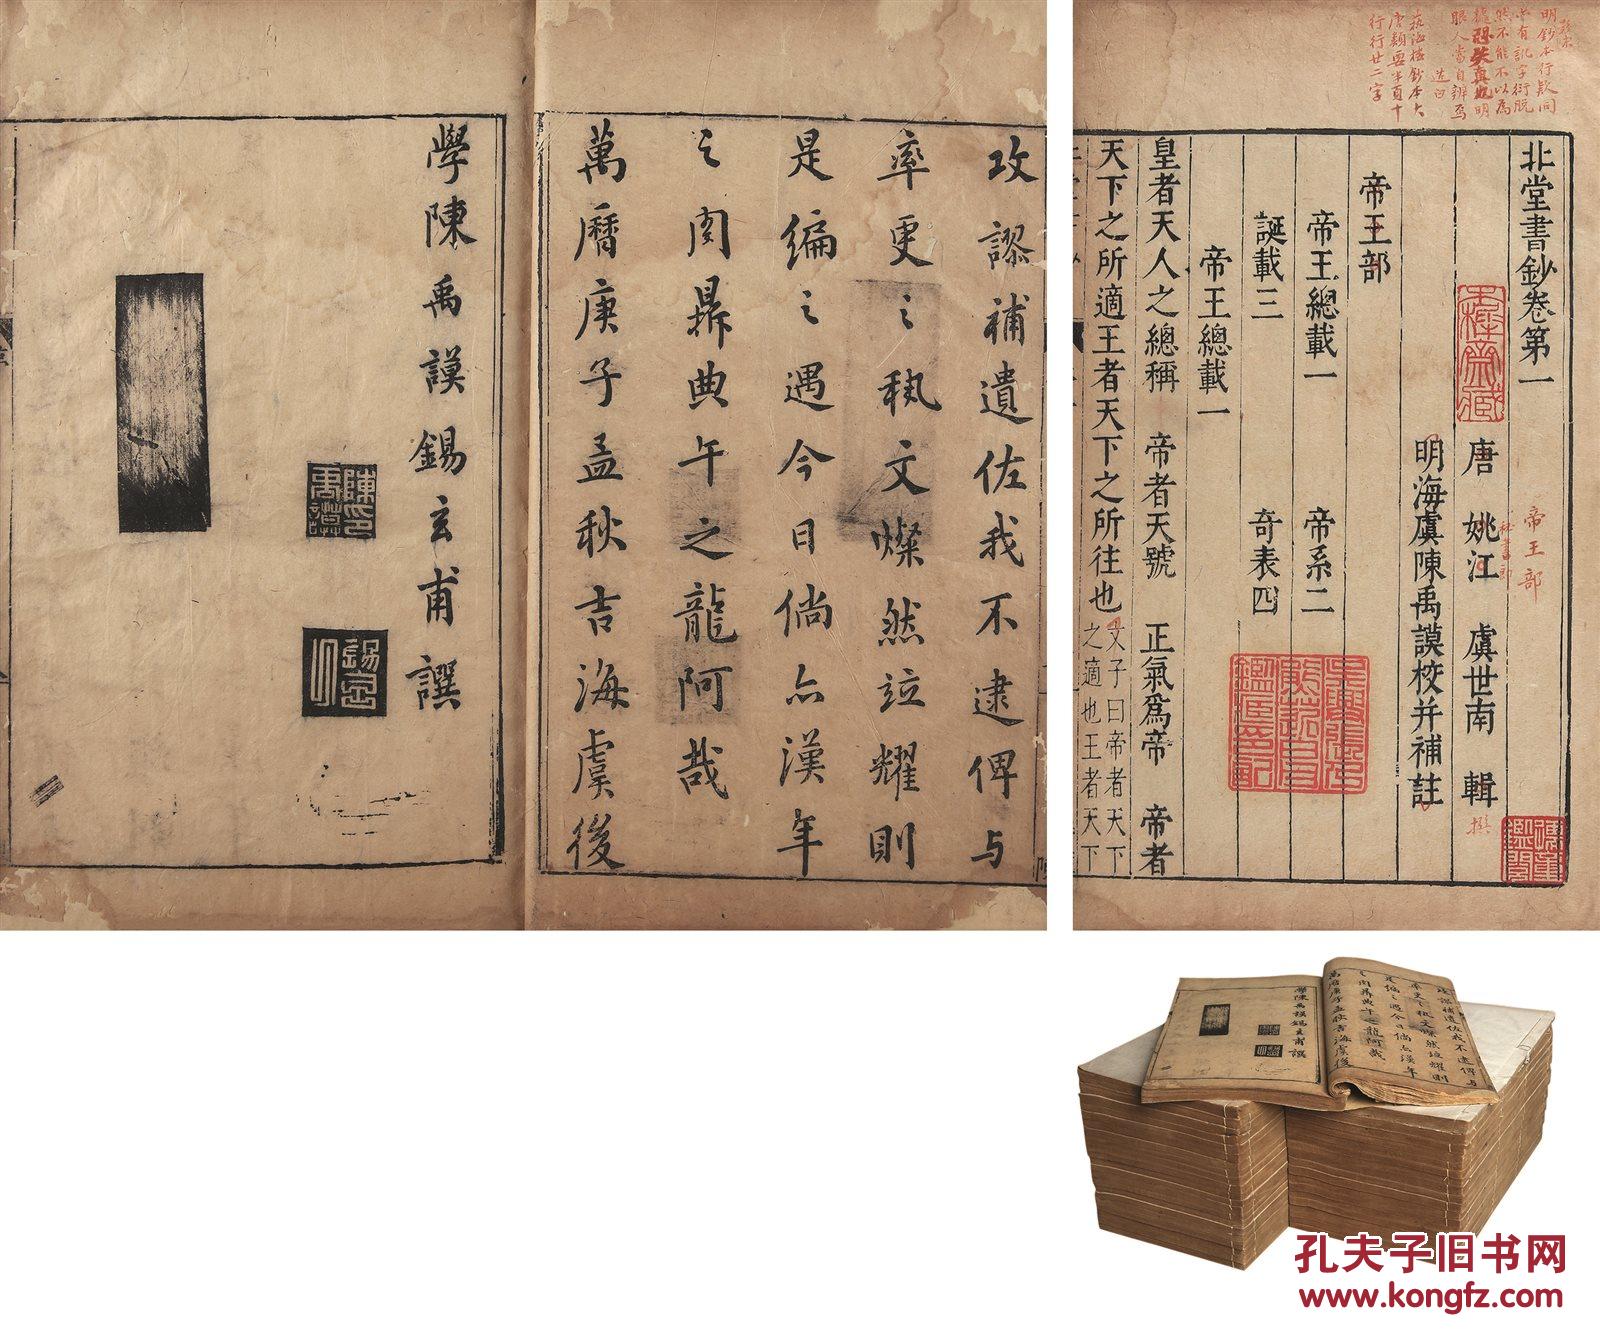 北堂書鈔卷第一
唐 姚江 虞世南 輯
明海虞陳禹謨校并補註
帝王部
帝王總載一 帝系二
誕載三 奇表四
帝王總載一
皇者天人之總稱 帝者天號 正氣爲帝 帝者
天下之所適王者天下之所往也 文子曰帝者天下
之適也王者天下
帝王部
撰
明鈔本行款同
行行廿二字
攻謬補遺佐我不逮俾与
率更之執文燦然竝耀則
是編之遇今日倘亦漢年
之閎鼎典午之龍阿哉
萬曆庚子孟秋吉海虞後
學陳禹謨錫玄甫譔
陳禹謨印
孔夫子旧书网
www.kongfz.com